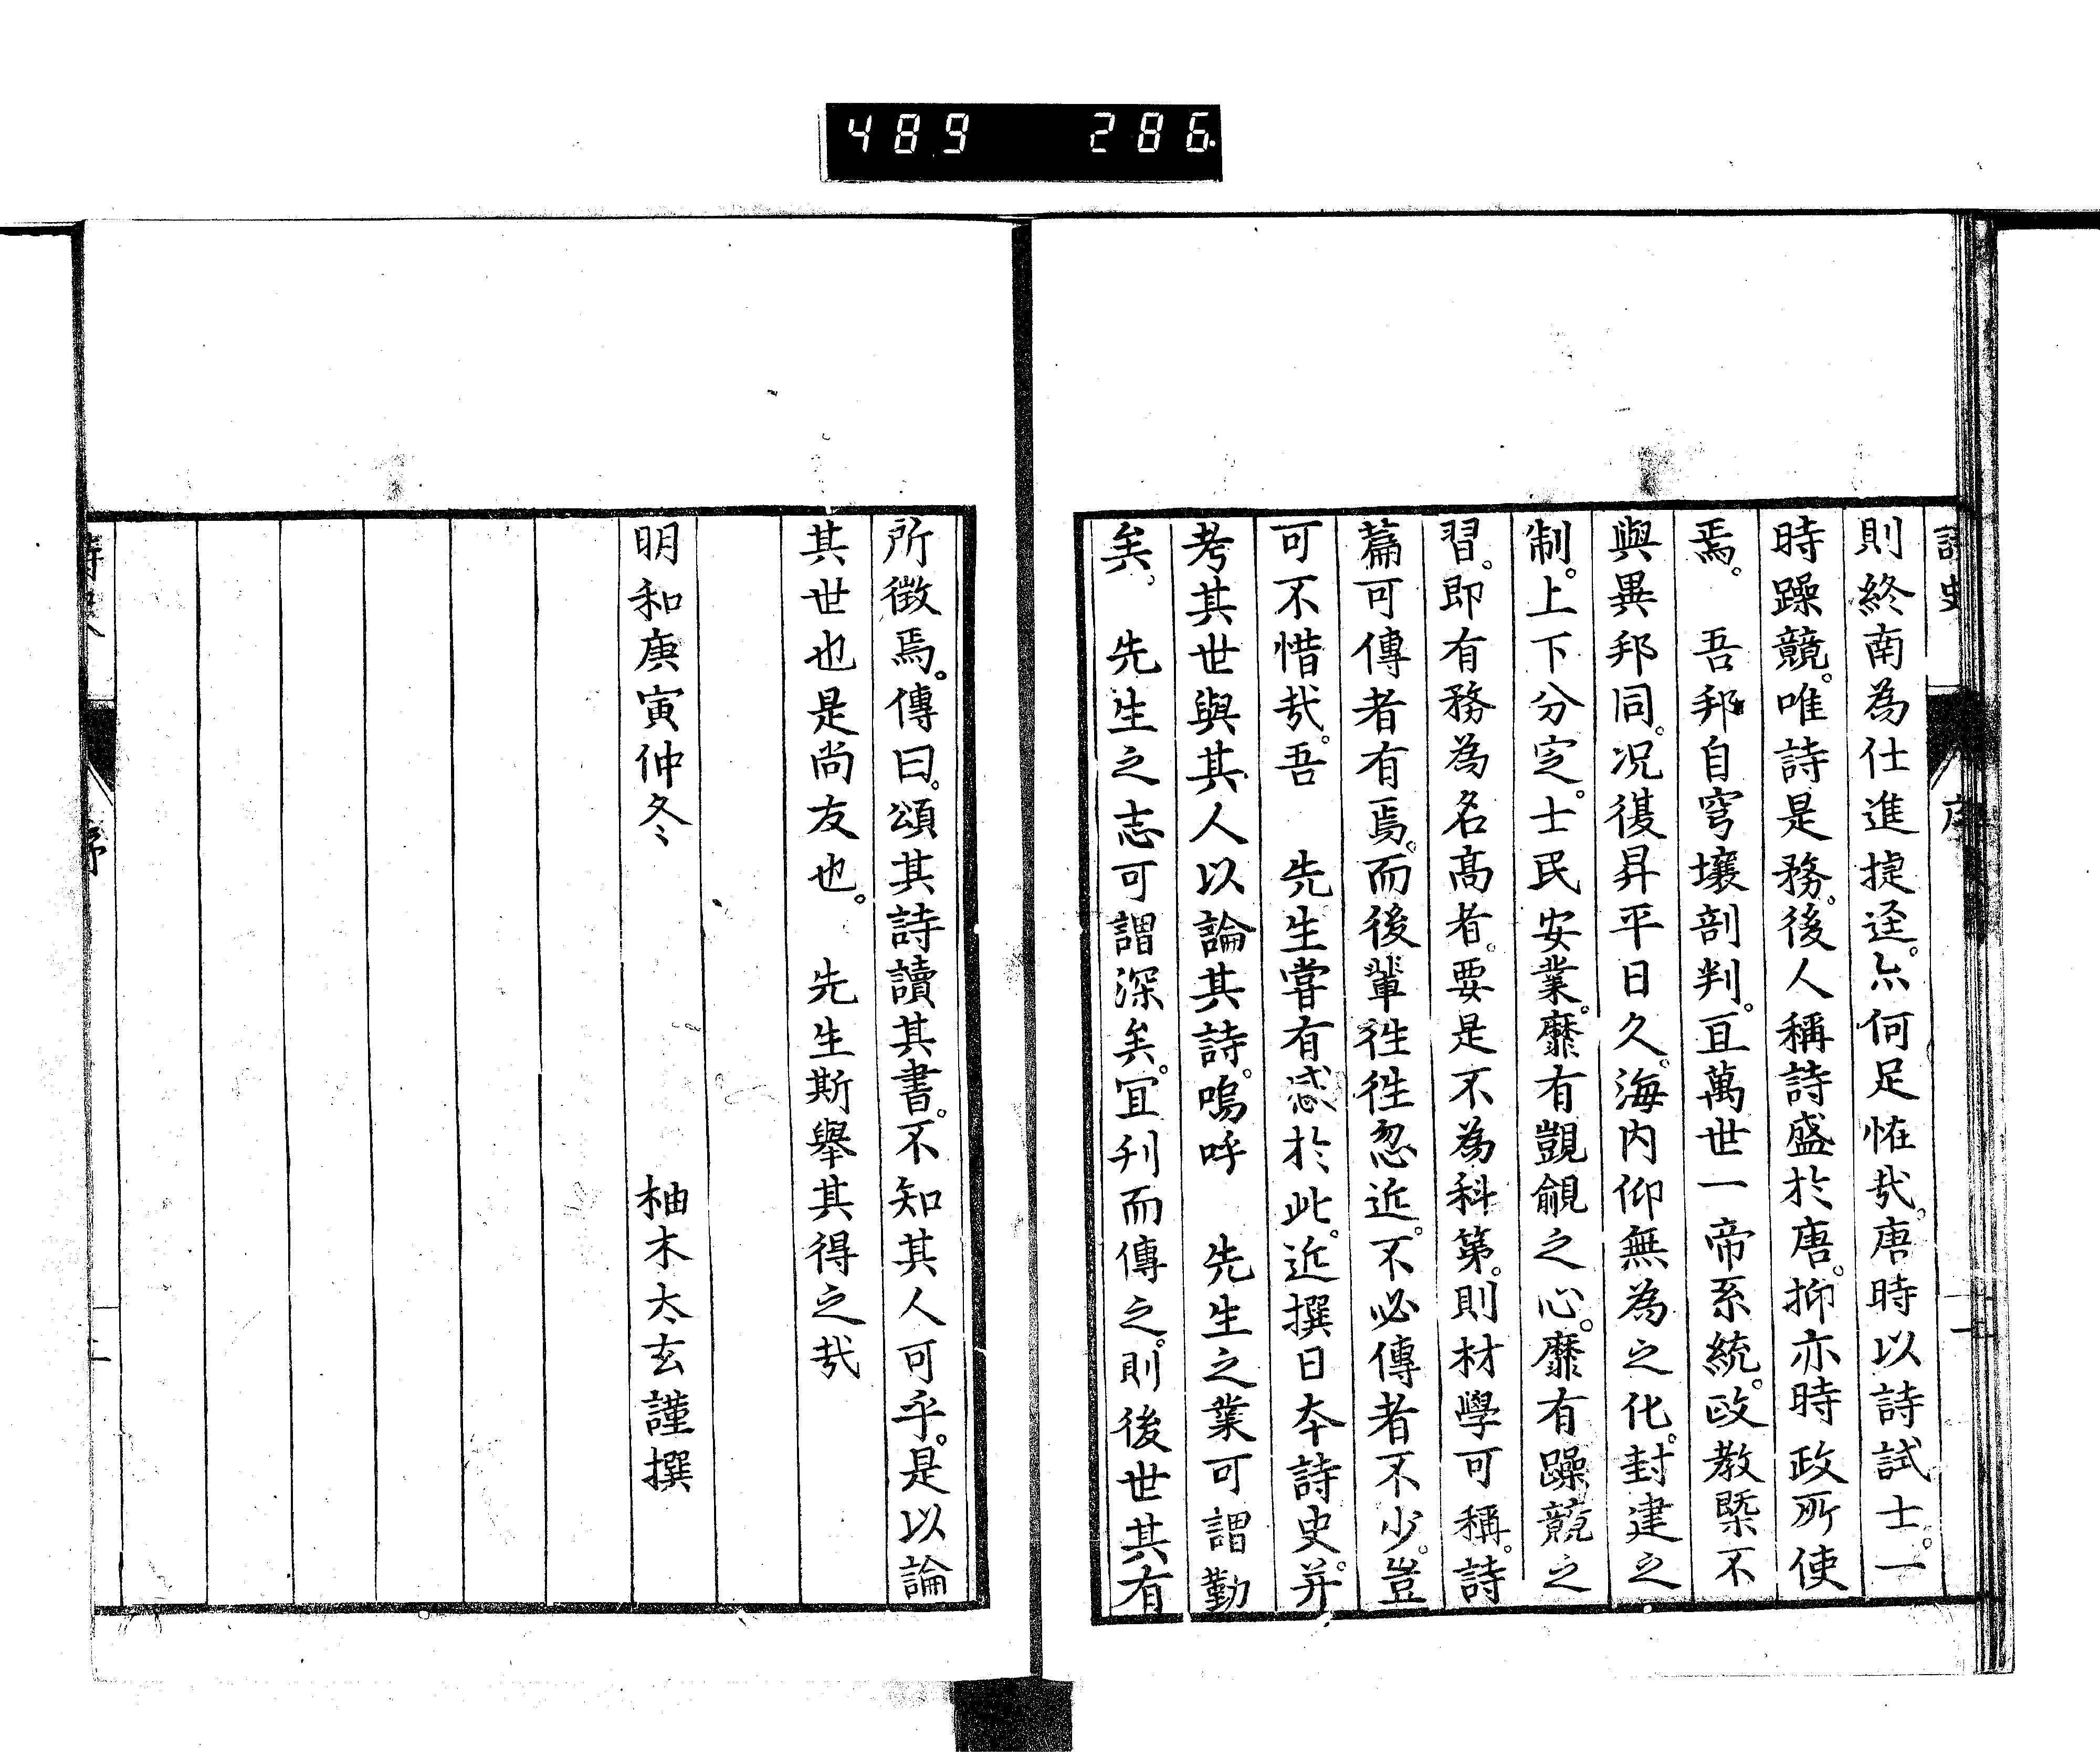 489 286
詩史 序
則終南為仕進捷逕。亦何足恠哉。唐時以詩試士。一
時躁競。唯詩是務。後人稱詩盛於唐。抑亦時政所使
焉。 吾邦自穹壤剖判。亘萬世一帝系統。政教槩不
與異邦同。况復昇平日久。海内仰無為之化。封建之
制。上下分定。士民安業。靡有覬覦之心。靡有躁競之
習。即有務為名髙者。要是不為科第。則材學可稱。詩
篇可傳者有焉。而後輩徃徃忽近。不必傳者不少。豈
可不惜哉。吾 先生嘗有感於此。近撰日本詩史。并
考其世與其人以論其詩。嗚呼 先生之業可謂勤
矣。 先生之志可謂深矣。冝刋而傳之。則後世其有
所徴焉。傳曰。頌其詩讀其書。不知其人可乎。是以論
其世也是尚友也。 先生斯舉其得之哉
明和庚寅仲冬 柚木太玄謹撰